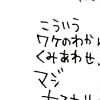 こういう
ワケのわか
くみあわせ、
マジ